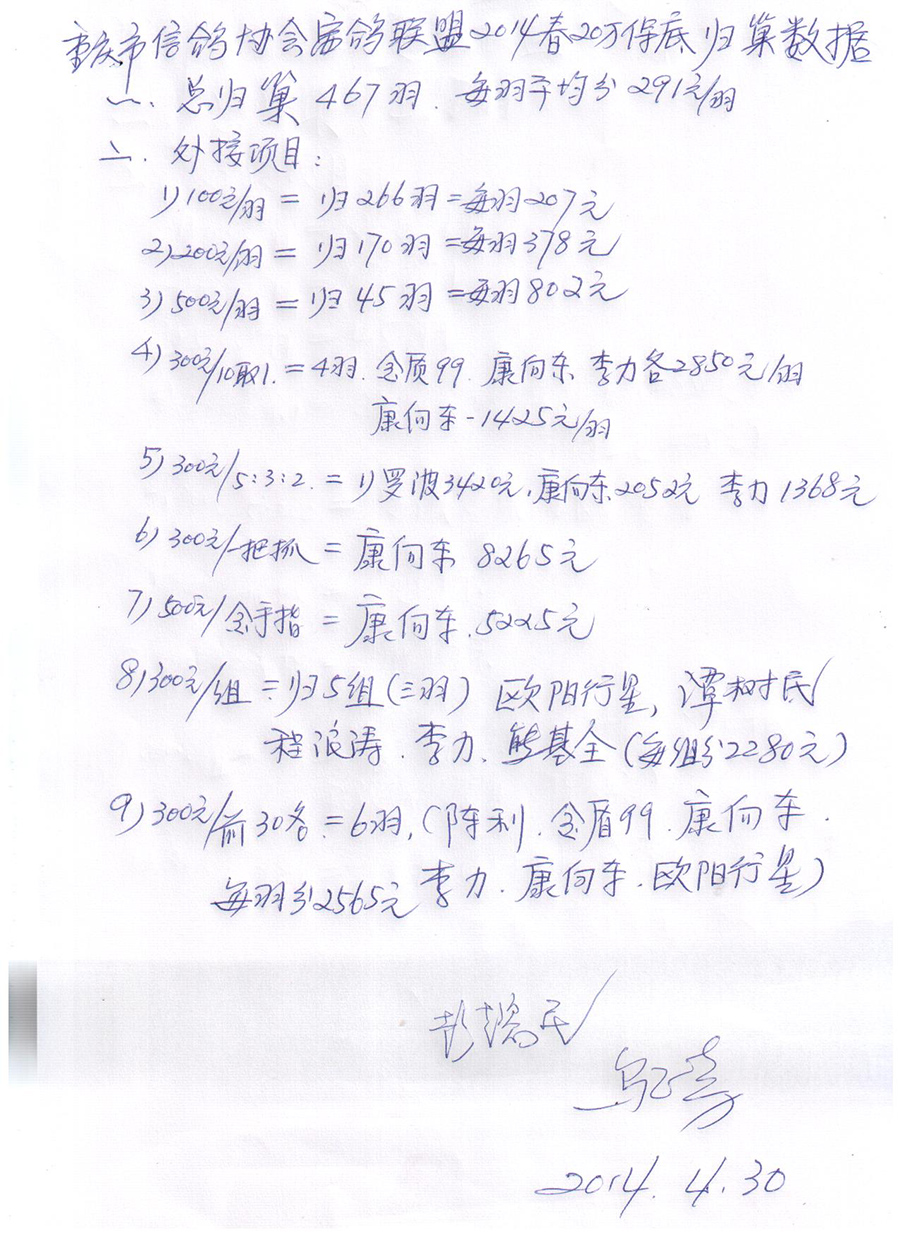 重庆市信鸽协会赛鸽联盟2014春20万保底归巢数据
一. 总归巢467羽. 每羽平均分291元/羽
二. 外接项目:
1)100元/羽 = 归266羽=每羽207元
2)200元/羽 = 归170羽=每羽378元
3)500元/羽 = 归45羽=每羽802元
4)300元/10取1. = 4羽. 金盾99. 康向东 李力各2850元/羽
康向东-1425元/羽
5)300元/5:3:2. = 1)罗波3420元,康向东2052元 李力1368元
6)300元/一把抓 = 康向东 8265元
7)500元/金手指 = 康向东.5225元
8)300元/组 = 归5组(三羽) 欧阳行星, 潭树民
程浪涛.李力.熊基全(每组分2280元)
9)300元/前30名 = 6羽,(陈利.金盾99.康向东.
每羽分2565元 李力.康向东.欧阳行星)
2014.4.30